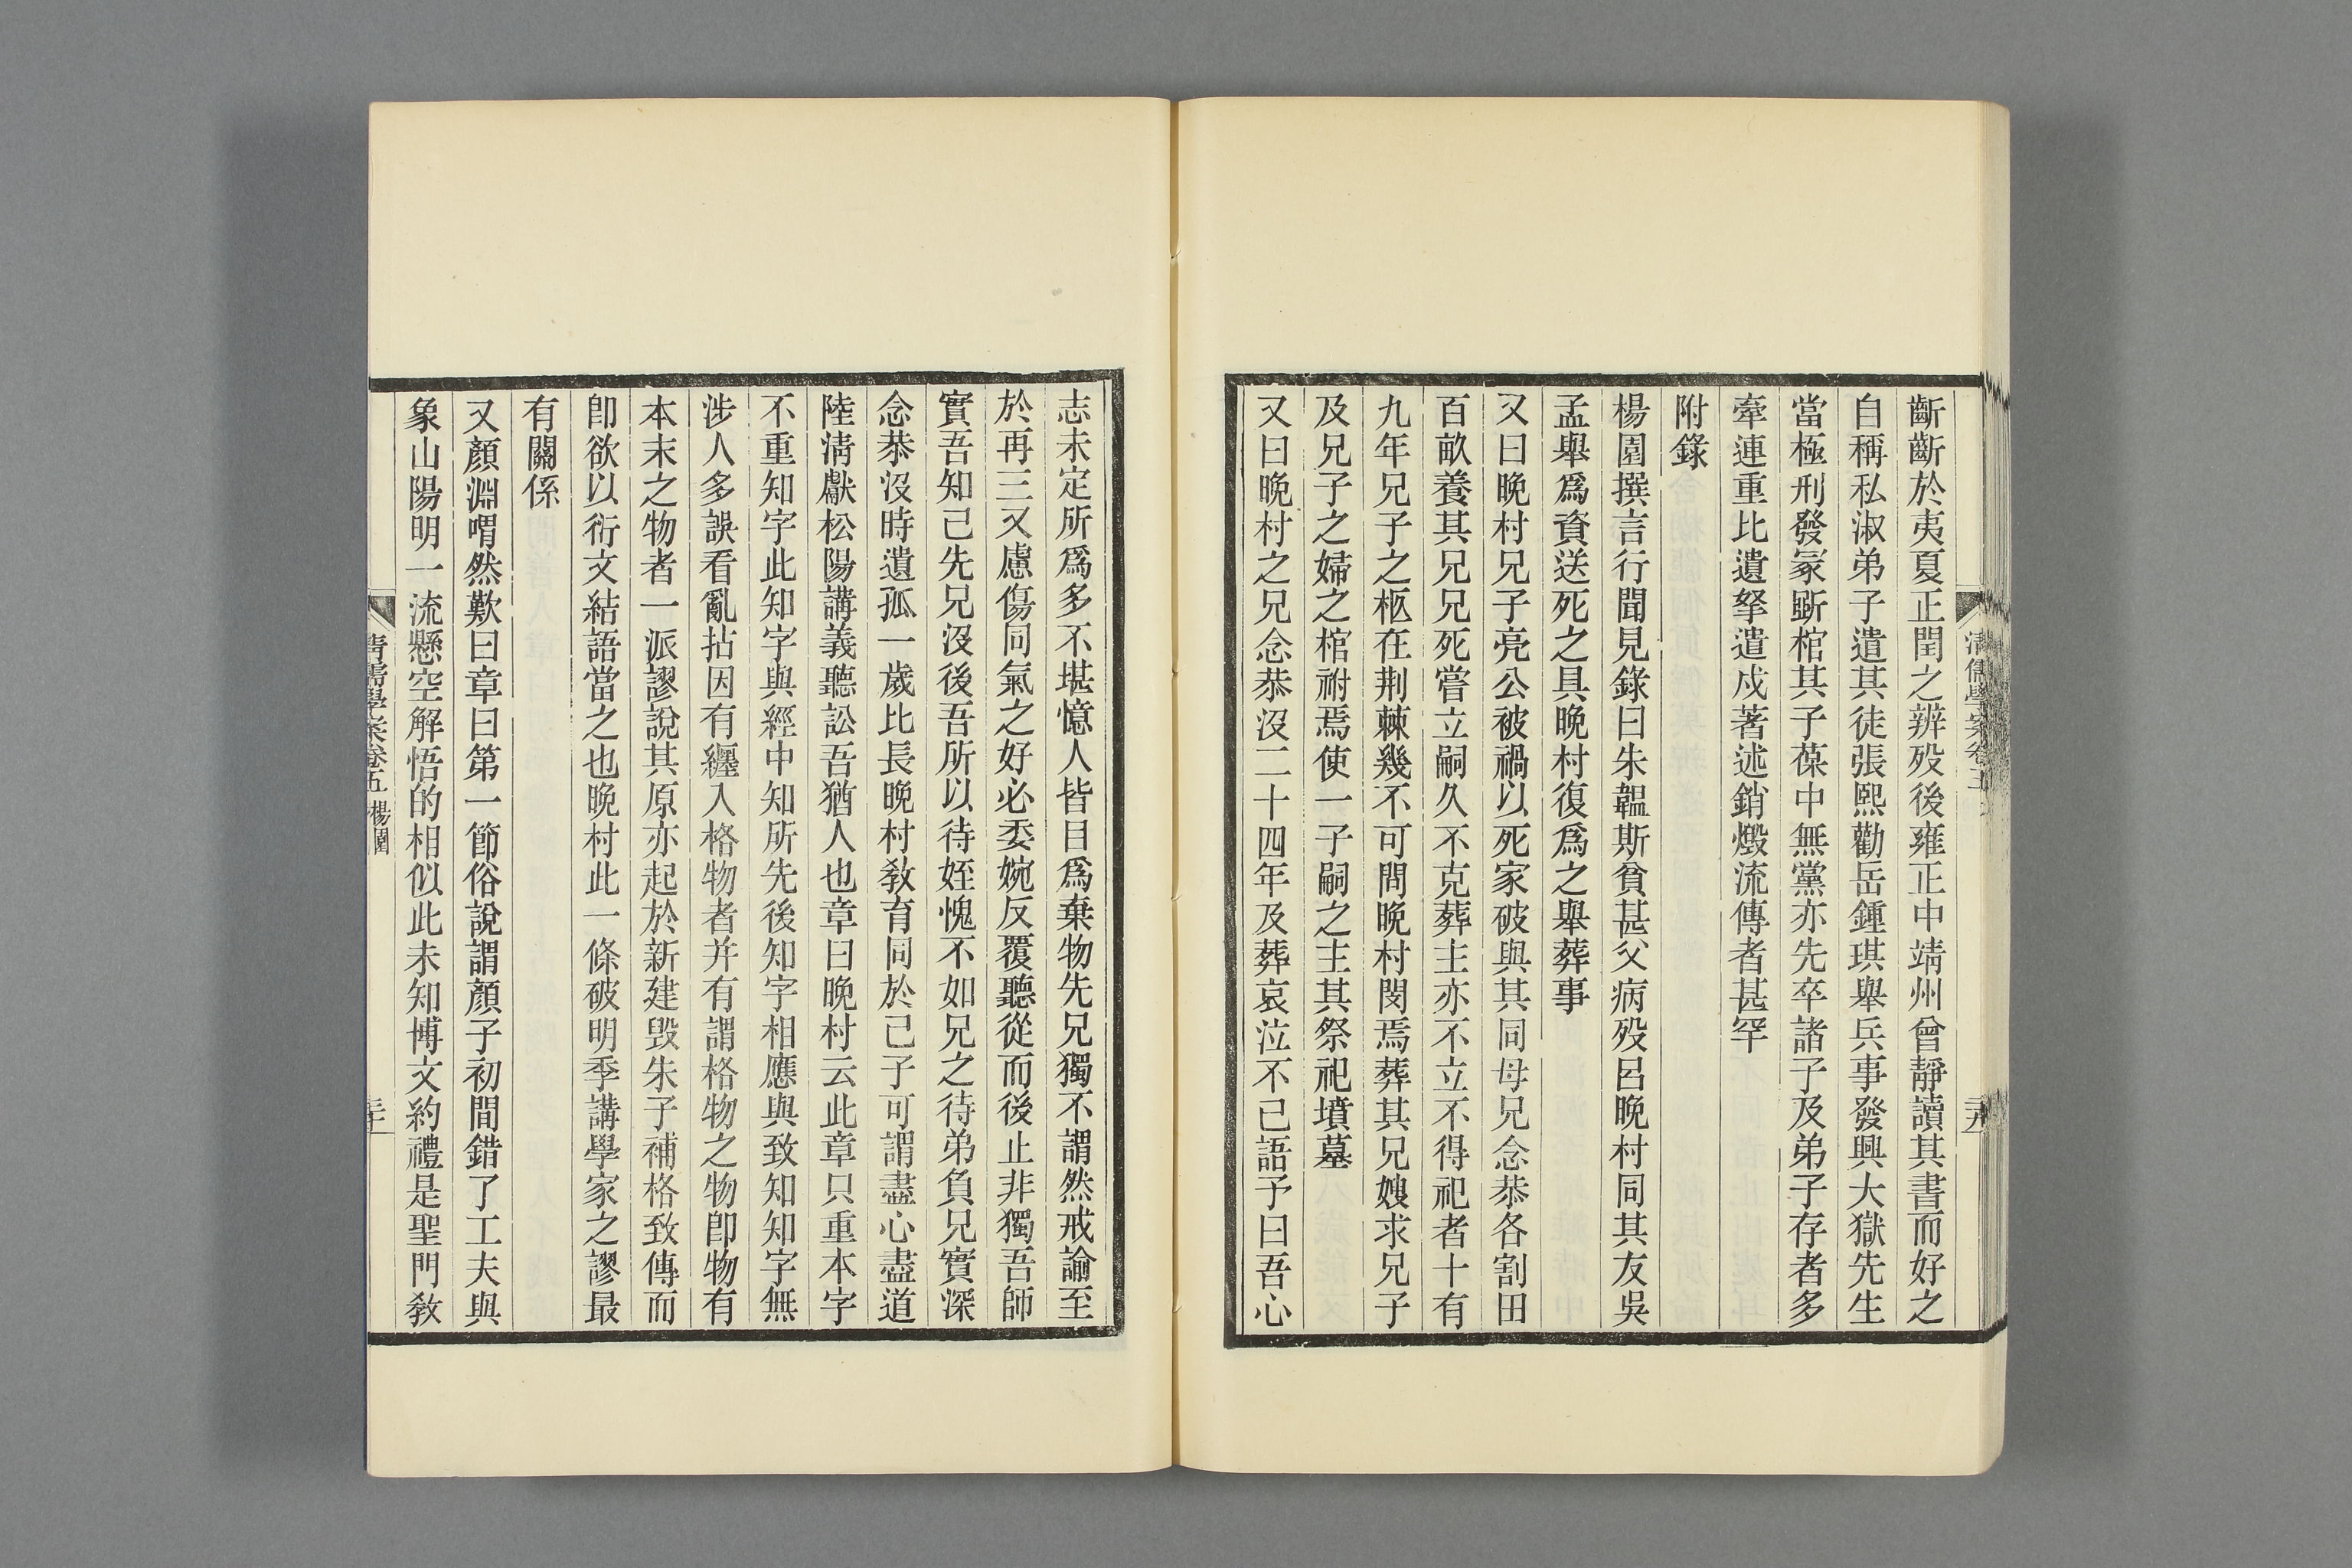 斷斷於夷夏正閏之辨歿後雍正中靖州曾靜讀其書而好之
自稱私淑弟子遣其徒張熙勸岳鍾琪舉兵事發興大獄先生
當極刑發冢斲棺其子葆中無黨亦先卒諸子及弟子存者多
牽連重比遺孥遣戍著述銷燬流傳者甚罕
附錄
楊園撰言行聞見錄曰朱韞斯貧甚父病歿呂晚村同其友吳
孟舉爲資送死之具晚村復爲之舉葬事
又曰晚村兄子亮公被禍以死家破與其同母兄念恭各割田
百畝養其兄兄死嘗立嗣久不克葬主亦不立不得祀者十有
九年兄子之柩在荆棘幾不可問晚村閔焉葬其兄嫂求兄子
及兄子之婦之棺祔焉使一子嗣之主其祭祀墳墓
又曰晚村之兄念恭沒二十四年及葬哀泣不已語予曰吾心
志未定所爲多不堪憶人皆目爲棄物先兄獨不謂然戒諭至
於再三又慮傷同氣之好必委婉反覆聽從而後止非獨吾師
實吾知己先兄沒後吾所以待姪愧不如兄之待弟負兄實深
念恭沒時遺孤一歲比長晚村敎育同於己子可謂盡心盡道
陸淸獻松陽講義聽訟吾猶人也章曰晚村云此章只重本字
不重知字此知字與經中知所先後知字相應與致知知字無
涉人多誤看亂拈因有纒入格物者并有謂格物之物卽物有
本末之物者一派謬說其原亦起於新建毀朱子補格致傳而
卽欲以衍文結語當之也晚村此一條破明季講學家之謬最
有關係
又顏淵喟然歎曰章曰第一節俗說謂顏子初間錯了工夫與
象山陽明一流懸空解悟的相似此未知博文約禮是聖門敎
淸儒學案卷五 楊園